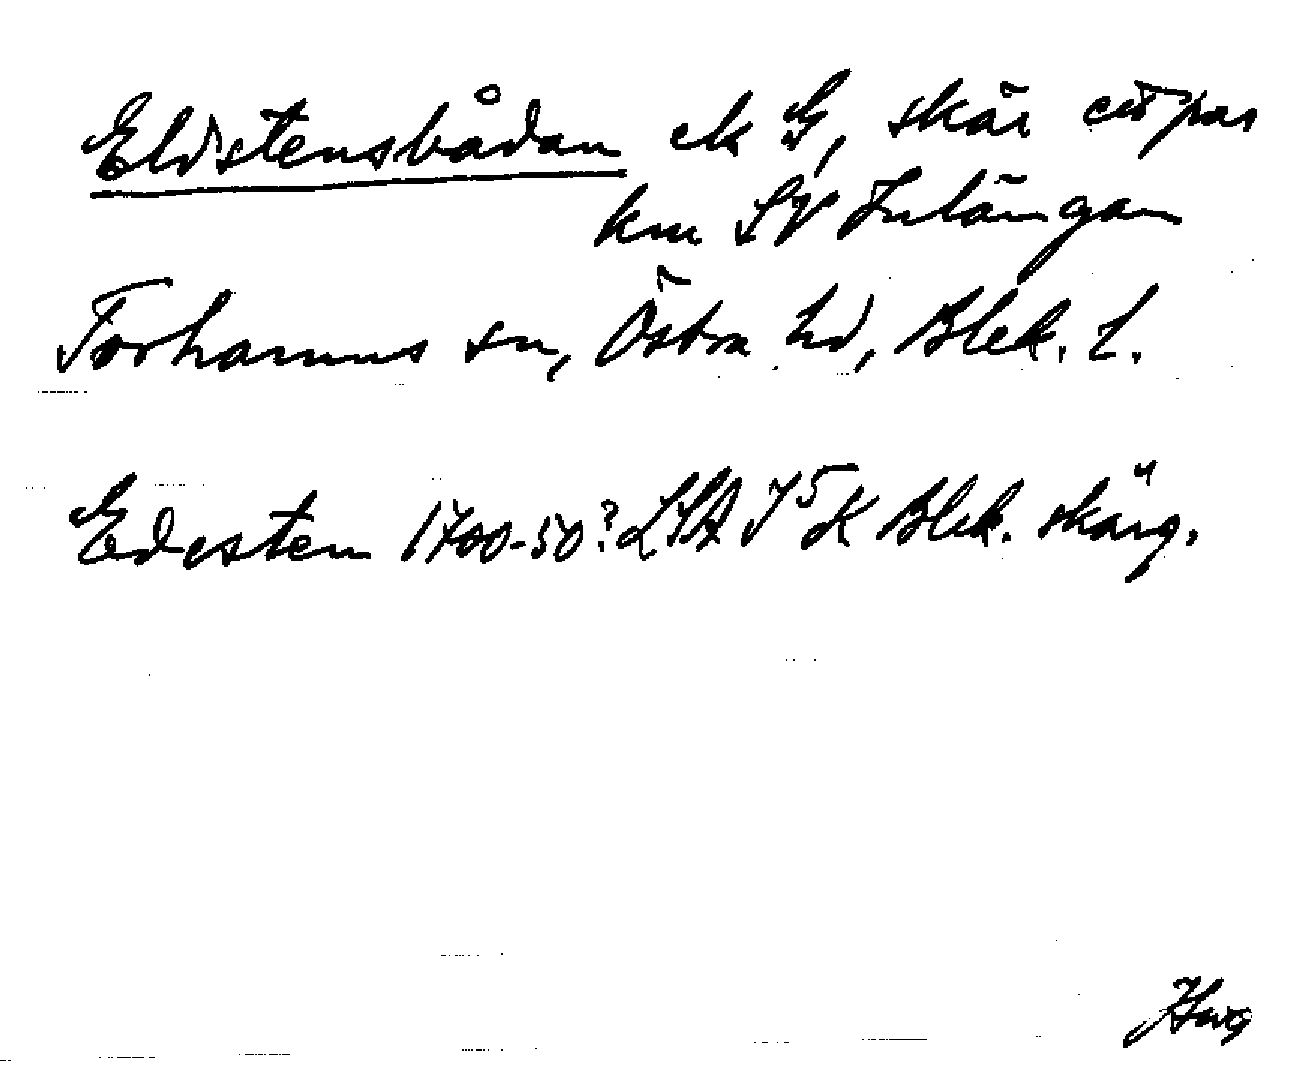 Eldstensbådan ek G, skär ett par
km SV Inlängan
Torhamns sn, Östra hd, Blek. l.
Edesten 1700-50? LSA J⁵K Blek. skärg.